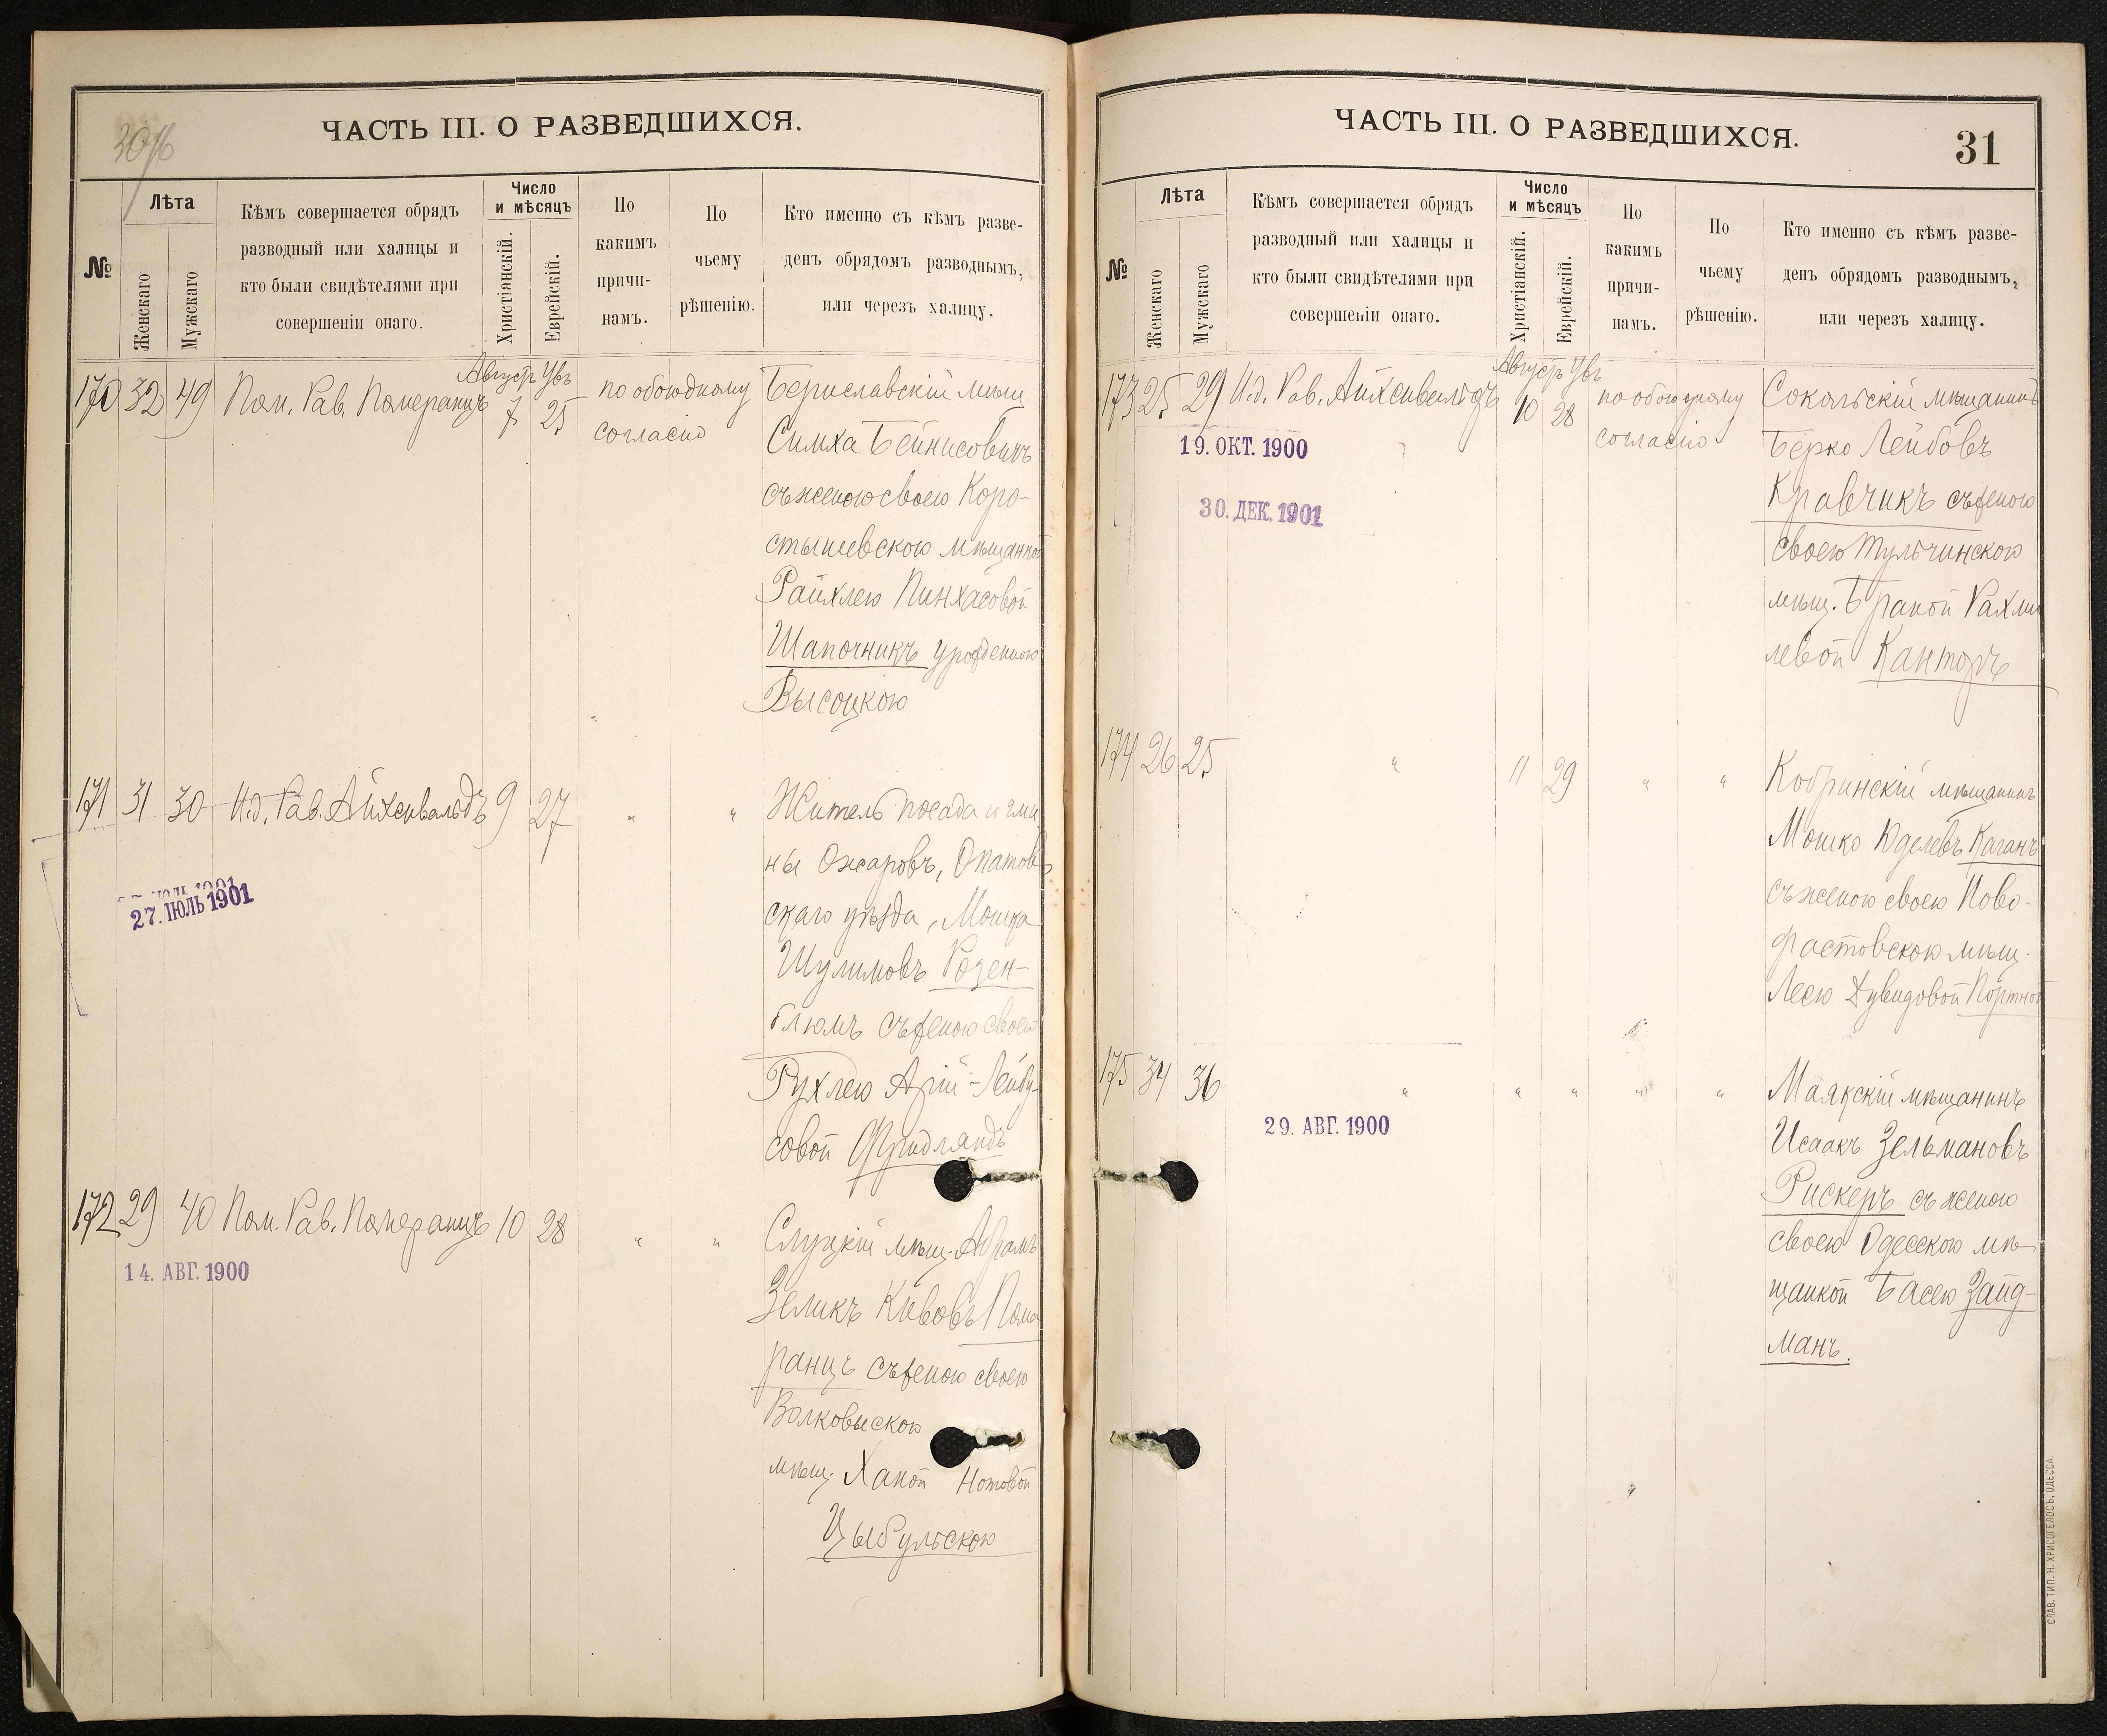 30 об
ЧАСТЬ III. О РАЗВЕДШИХСЯ.
№
Лѣта
Женскаго
Мужскаго
Кѣмъ совершается обрядъ
разводный или халицы и
кто были свидѣтелями при
совершеніи онаго.
Число
и мѣсяцъ
Христіанскій.
Еврейскій.
По
какимъ
причи-
намъ.
По
чьему
рѣшенію.
Кто именно съ кѣмъ разве-
денъ обрядомъ разводнымъ,
или черезъ халицу.
Августъ Увъ
170 32 49 Пом. Рав. Померанцъ 7 25 по обоюдному
согласію
Бериславскій мѣщ.
Симха Бейнисовичъ
съ женою своею Коро-
стышевскою мѣщанкой
Райхлею Пинхасовой
Шапочникъ урожденною
Высоцкою
171 31 30 И.д. Рав. Айхенвальдъ 9 27 " "
27. ІЮЛЬ 1901
27. ІЮЛЬ 1901
Житель посада и гми-
ны Ожаровъ, Опатов-
скаго уѣзда, Мошка
Шулимовъ Розен-
блюмъ съ женою своею
Рухлею Арій-Лейбу-
совой Фридландъ
172 29 40 Пом. Рав. Померанцъ 10 28 " "
14. АВГ. 1900
Слуцкій мѣщ. Абрамъ
Зеликъ Кивовъ Поме
ранцъ съ женою своею
Волковыскою
мѣщ. Ханой Нотовой
Цыбульскою
ЧАСТЬ III. О РАЗВЕДШИХСЯ.
31
№
Лѣта
Женскаго
Мужскаго
Кѣмъ совершается обрядъ
разводный или халицы и
кто были свидѣтелями при
совершеніи онаго.
Число
и мѣсяцъ
Христіанскій.
Еврейскій.
По
какимъ
причи-
намъ.
По
чьему
рѣшенію.
Кто именно съ кѣмъ разве-
денъ обрядомъ разводнымъ,
или черезъ халицу.
Августъ Увъ
173 25 29 И.д. Рав. Айхенвальдъ 10 28 по обоюдному
согласію
19. ОКТ. 1900
30. ДЕК. 1901
Сокольскій мѣщанинъ
Берко Лейбовъ
Кравчикъ съ женою
своею Тульчинскою
мѣщ. Браной Рахми
левой Канторъ
174 26 25 " 11 29 " "
Кобринскій мѣщанинъ
Мошко Юделевъ Каганъ
съ женою своею Ново-
фастовскою мѣщ.
Лесю Дувидовой Портной
175 34 36 " " " " "
29. АВГ. 1900
Маякскій мѣщанинъ
Исаакъ Зельмановъ
Рискеръ съ женою
своею Одесскою мѣ-
щанкой Басею Зайд-
манъ.
СЛАВ. ТИП. Н. ХРИСОГЕЛОСЪ, ОДЕССА.